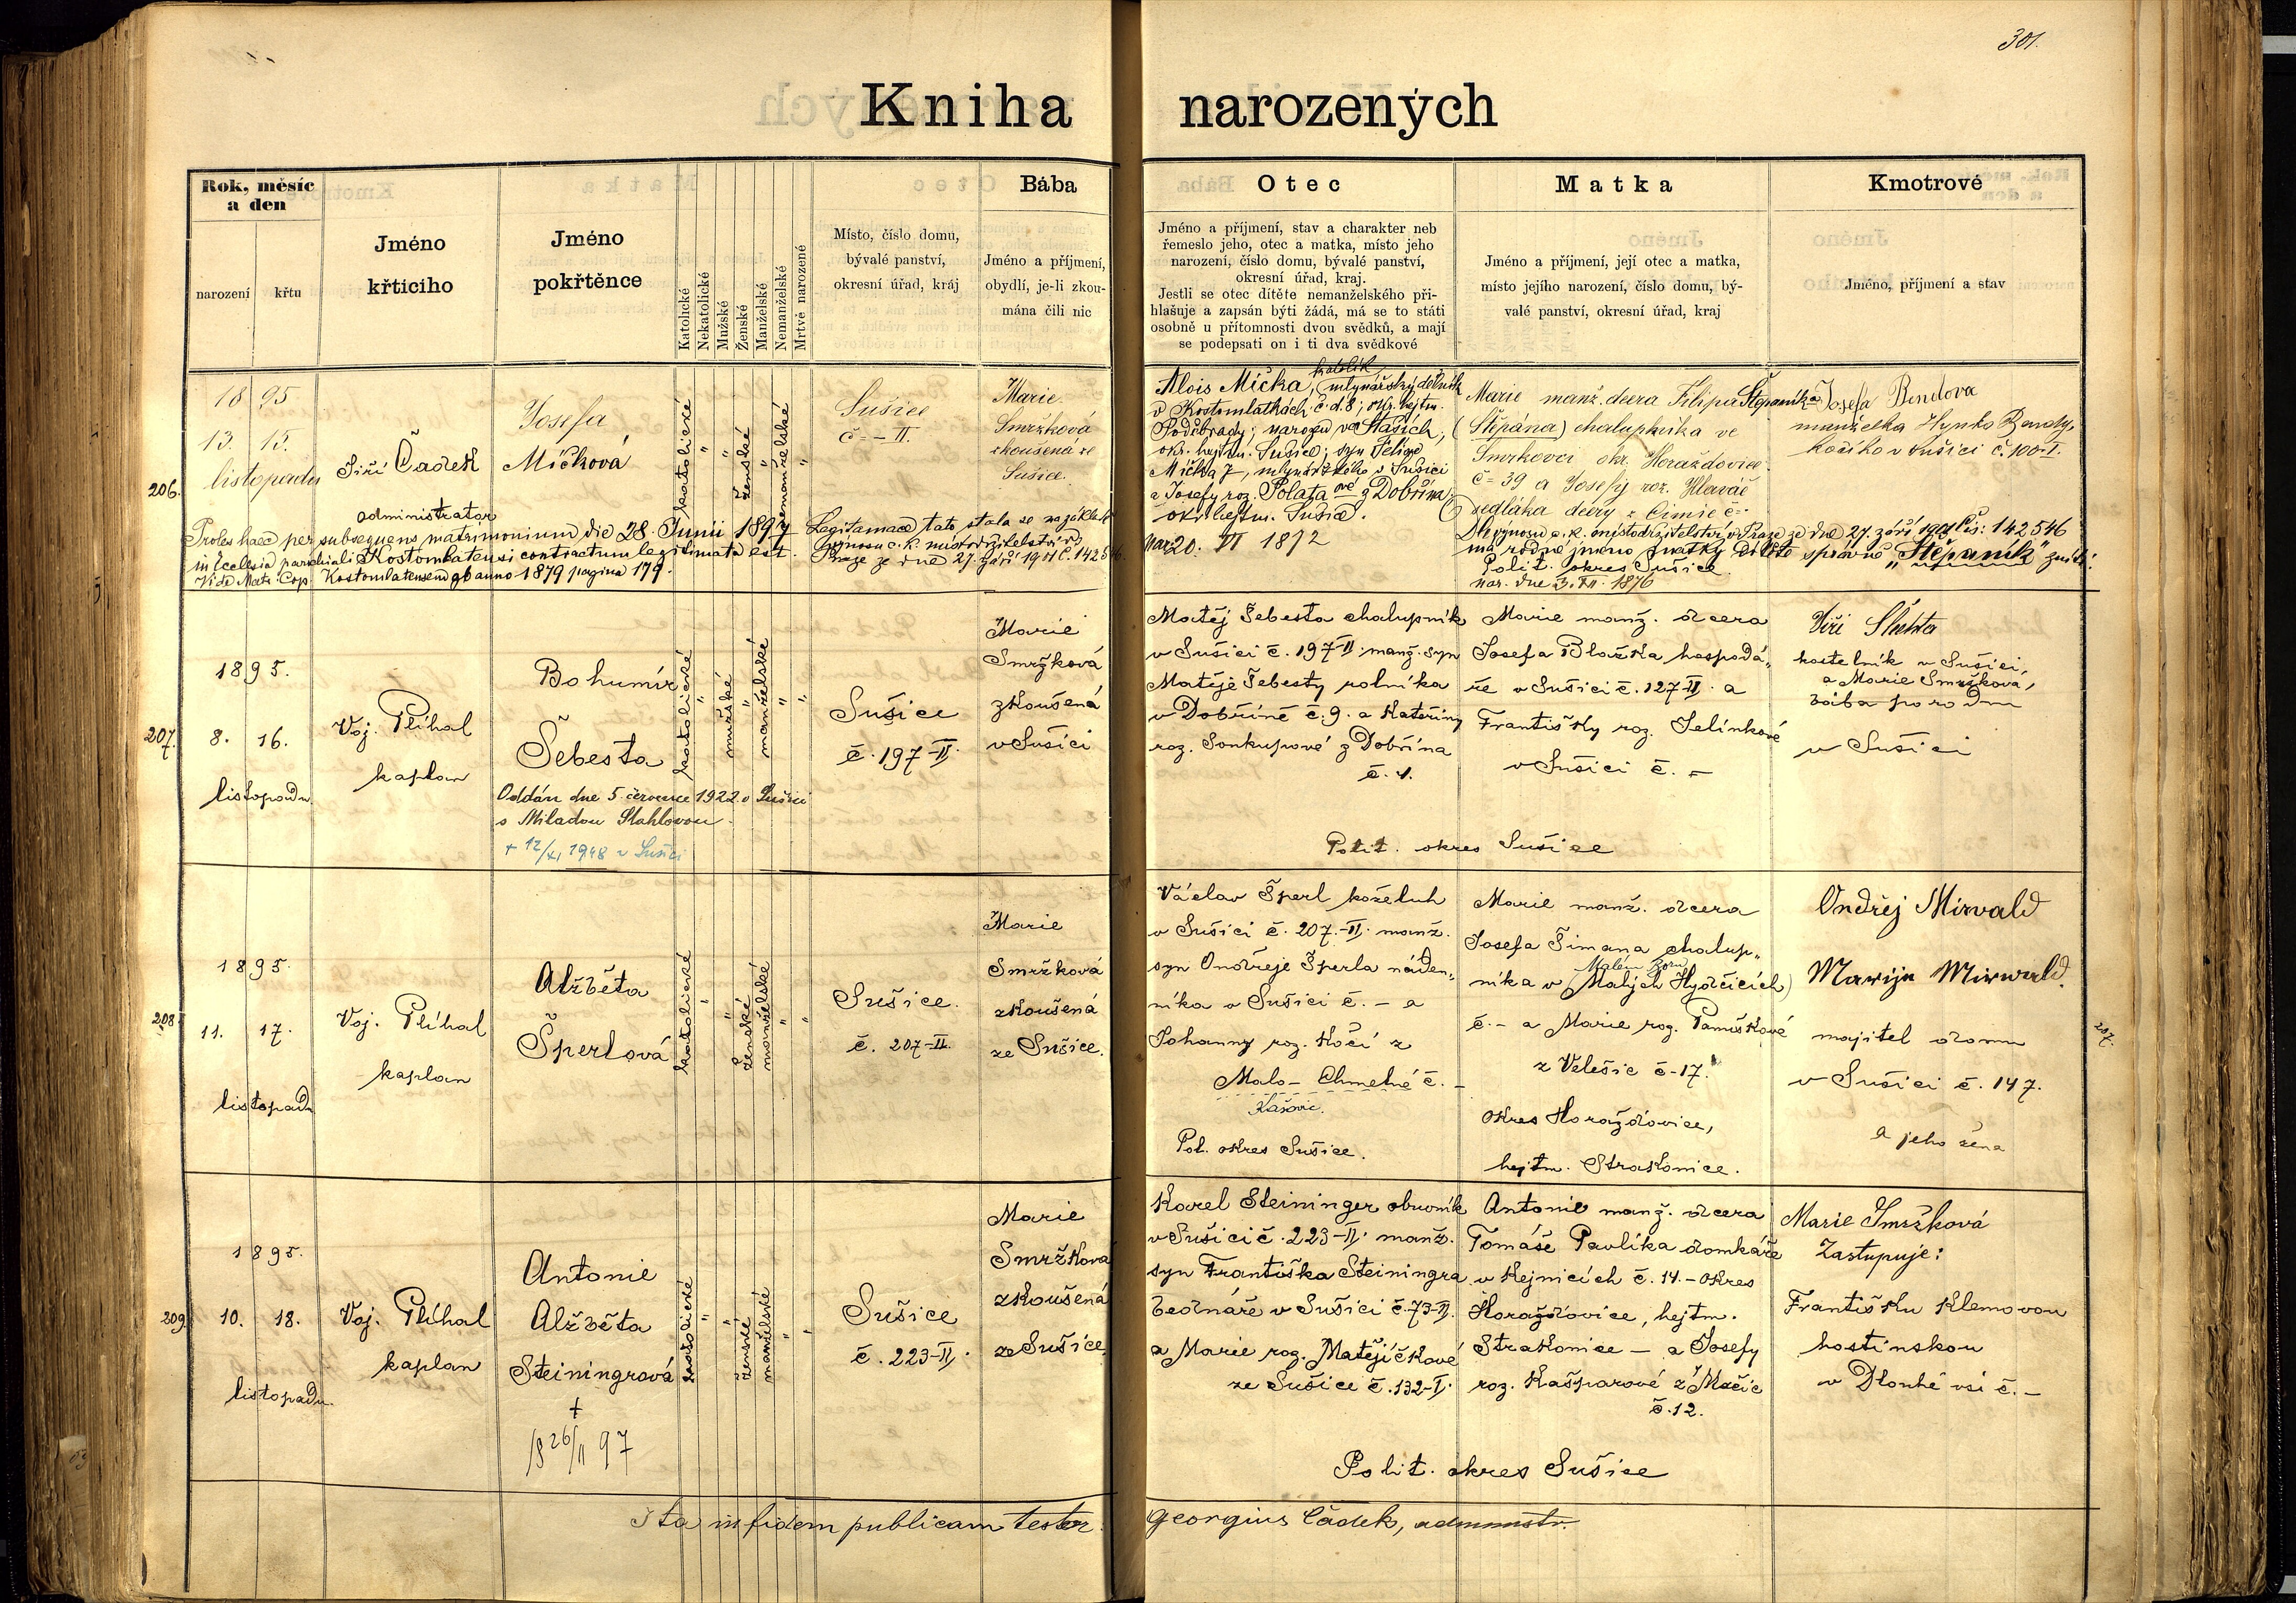 301.
Kniha narozených
Rok, měsíc
a den
narození
křtu
Jméno
křticího
Jméno
pokřtěnce
Katolické
Nekatolické
Mužské
Ženské
Manželské
Nemanželské
Mrtvě narozené
Místo, číslo domu,
bývalé panství,
okresní úřad, kráj
Bába
Jméno a příjmení,
obydlí, je-li zkou-
mána čili nic
Otec
Jméno a příjmení, stav a charakter neb
řemeslo jeho, otec a matka, místo jeho
narození, číslo domu, bývalé panství,
okresní úřad, kraj.
Jestli se otec dítěte nemanželského při-
hlašuje a zapsán býti žádá, má se to státi
osobně u přítomnosti dvou svědků, a mají
se podepsati on i ti dva svědkové
Matka
Jméno a příjmení, její otec a matka,
místo jejího narození, číslo domu, bý-
valé panství, okresní úřad, kraj
Kmotrové
Jméno, příjmení a stav
206.
1895
13. 15.
listopadu
Jiří Čadek
administrator
Josefa
Míčková
katolické
"
"
ženské
"
nemanželské
"
Sušice
č = – II.
Marie
Smržková
zkoušená ze
Sušice.
Proles haec per subsequens matrimonium die 28. Junii 1897
in Ecclesia parochiali Kostomlatensi contractum legitimata est.
Vide Matr. Cop. Kostomlatensem ab anno 1879 pagina 179.
Legitamace tato stala se na základě
výnosu c. k. místodržitelství v
Praze ze dne 27. září 1901 č. 142546.
katolík
Alois Míčka, mlynářský dělník
v Kostomlatkách č. d. 8; okr. hejtm.
Poděbrady; narozen ve Stašich,
okr. hejtm. Sušice; syn Felixe
Míčka †, mlynářského v Sušici
a Josefy roz. Polata ové z Dobřína
okr. hejtm. Sušice.
Nar. 20. VI 1872
Marie manž. dcera Filipa Štěpaníka
(Štěpána) chalupníka ve
Smrkovci okr. Horažďovice.
č = 39 a Josefy roz. Hlaváč
sedláka dcery z Čimic č =
Dle výnosu c. k. místodržitelství v Praze ze dne 27. září 1901 čís: 142546
má rodné jméno matky dítěte správně „Štěpaník" zníti.
Polit. okres Sušice.
nar. dne 3. XII. 1876
Josefa Bendova
manželka Hynka Bendy,
kočího v Sušici č. 100-I.
207.
1895.
8. 16.
listopadu
Voj. Plíhal
kaplan
Bohumír
Šebesta
Oddán dne 5. července 1922 v Sušici
s Miladou Stahlovou.
+ 12/XI 1948 v Sušici
katolické
"
mužské
"
manželské
"
"
Sušice
č. 197–II.
Marie
Smržková
zkoušená
v Sušici
Matěj Šebesta chalupník
v Sušici č. 197–II. manž. syn
Matěje Šebesty rolníka
v Dobříně č. 9. a Kateřiny
roz. Soukupové z Dobřína
č. 4.
Marie manž. dcera
Josefa Blažka hospodá-
ře v Sušici č. 127–II. a
Františky roz. Jelínkové
v Sušici č. –
Polit. okres Sušice
Jiří Šlehta
kostelník v Sušici,
a Marie Smržková,
bába porodní
v Sušici
208.
1895.
11. 17.
listopadu
Voj. Plíhal
kaplan
Alžběta
Šperlová
katolické
"
"
ženské
manželské
"
"
Sušice.
č. 207–II.
Marie
Smržková
zkoušená
ze Sušice.
Václav Šperl koželuh
v Sušici č. 207.–II. manž.
syn Ondřeje Šperla náden-
níka v Sušici č. – a
Johanny roz. Kočí z
Malo– Chmelné č. –
Kašovic.
Pol. okres Sušice.
Marie manž. dcera
Josefa Šimana chalup-
Malém Boru
níka v (Malých Hydčicích)
č. – a Marie roz. Panuškové
z Velešic č–17.
okres Horažďovice,
hejtm. Strakonice.
Ondřej Mirvald
Marija Mirwald.
majitel domu
v Sušici č. 147.
a jeho žena
207.
209.
1895.
10. 18.
listopadu.
Voj. Plíhal
kaplan
Antonie
Alžběta
Steiningrová
+
18 26/11 97
katolické
"
"
ženské
manželské
"
"
Sušice
č. 223–II.
Marie
Smržkova
zkoušená
ze Sušice.
Karel Steininger obuvník
v Sušici č. 223–II. manž.
syn Františka Steiningra
bednáře v Sušici č. 73–II.
a Marie roz. Matějíčkové
ze Sušice č. 132–I.
Antonie manž. dcera
Tomáše Pavlíka domkáře
v Kejnicích č. 14. – okres
Horažďovice, hejtm.
Strakonice – a Josefy
roz. Kašparové z Mačic
č. 12.
Polit. okres Sušice
Marie Smržková
Zastupuje:
Františku Klemovou
hostinskou
v Dlouhé vsi č. –
Ita in fidem publicam testor. Georgius Čadek, administr.